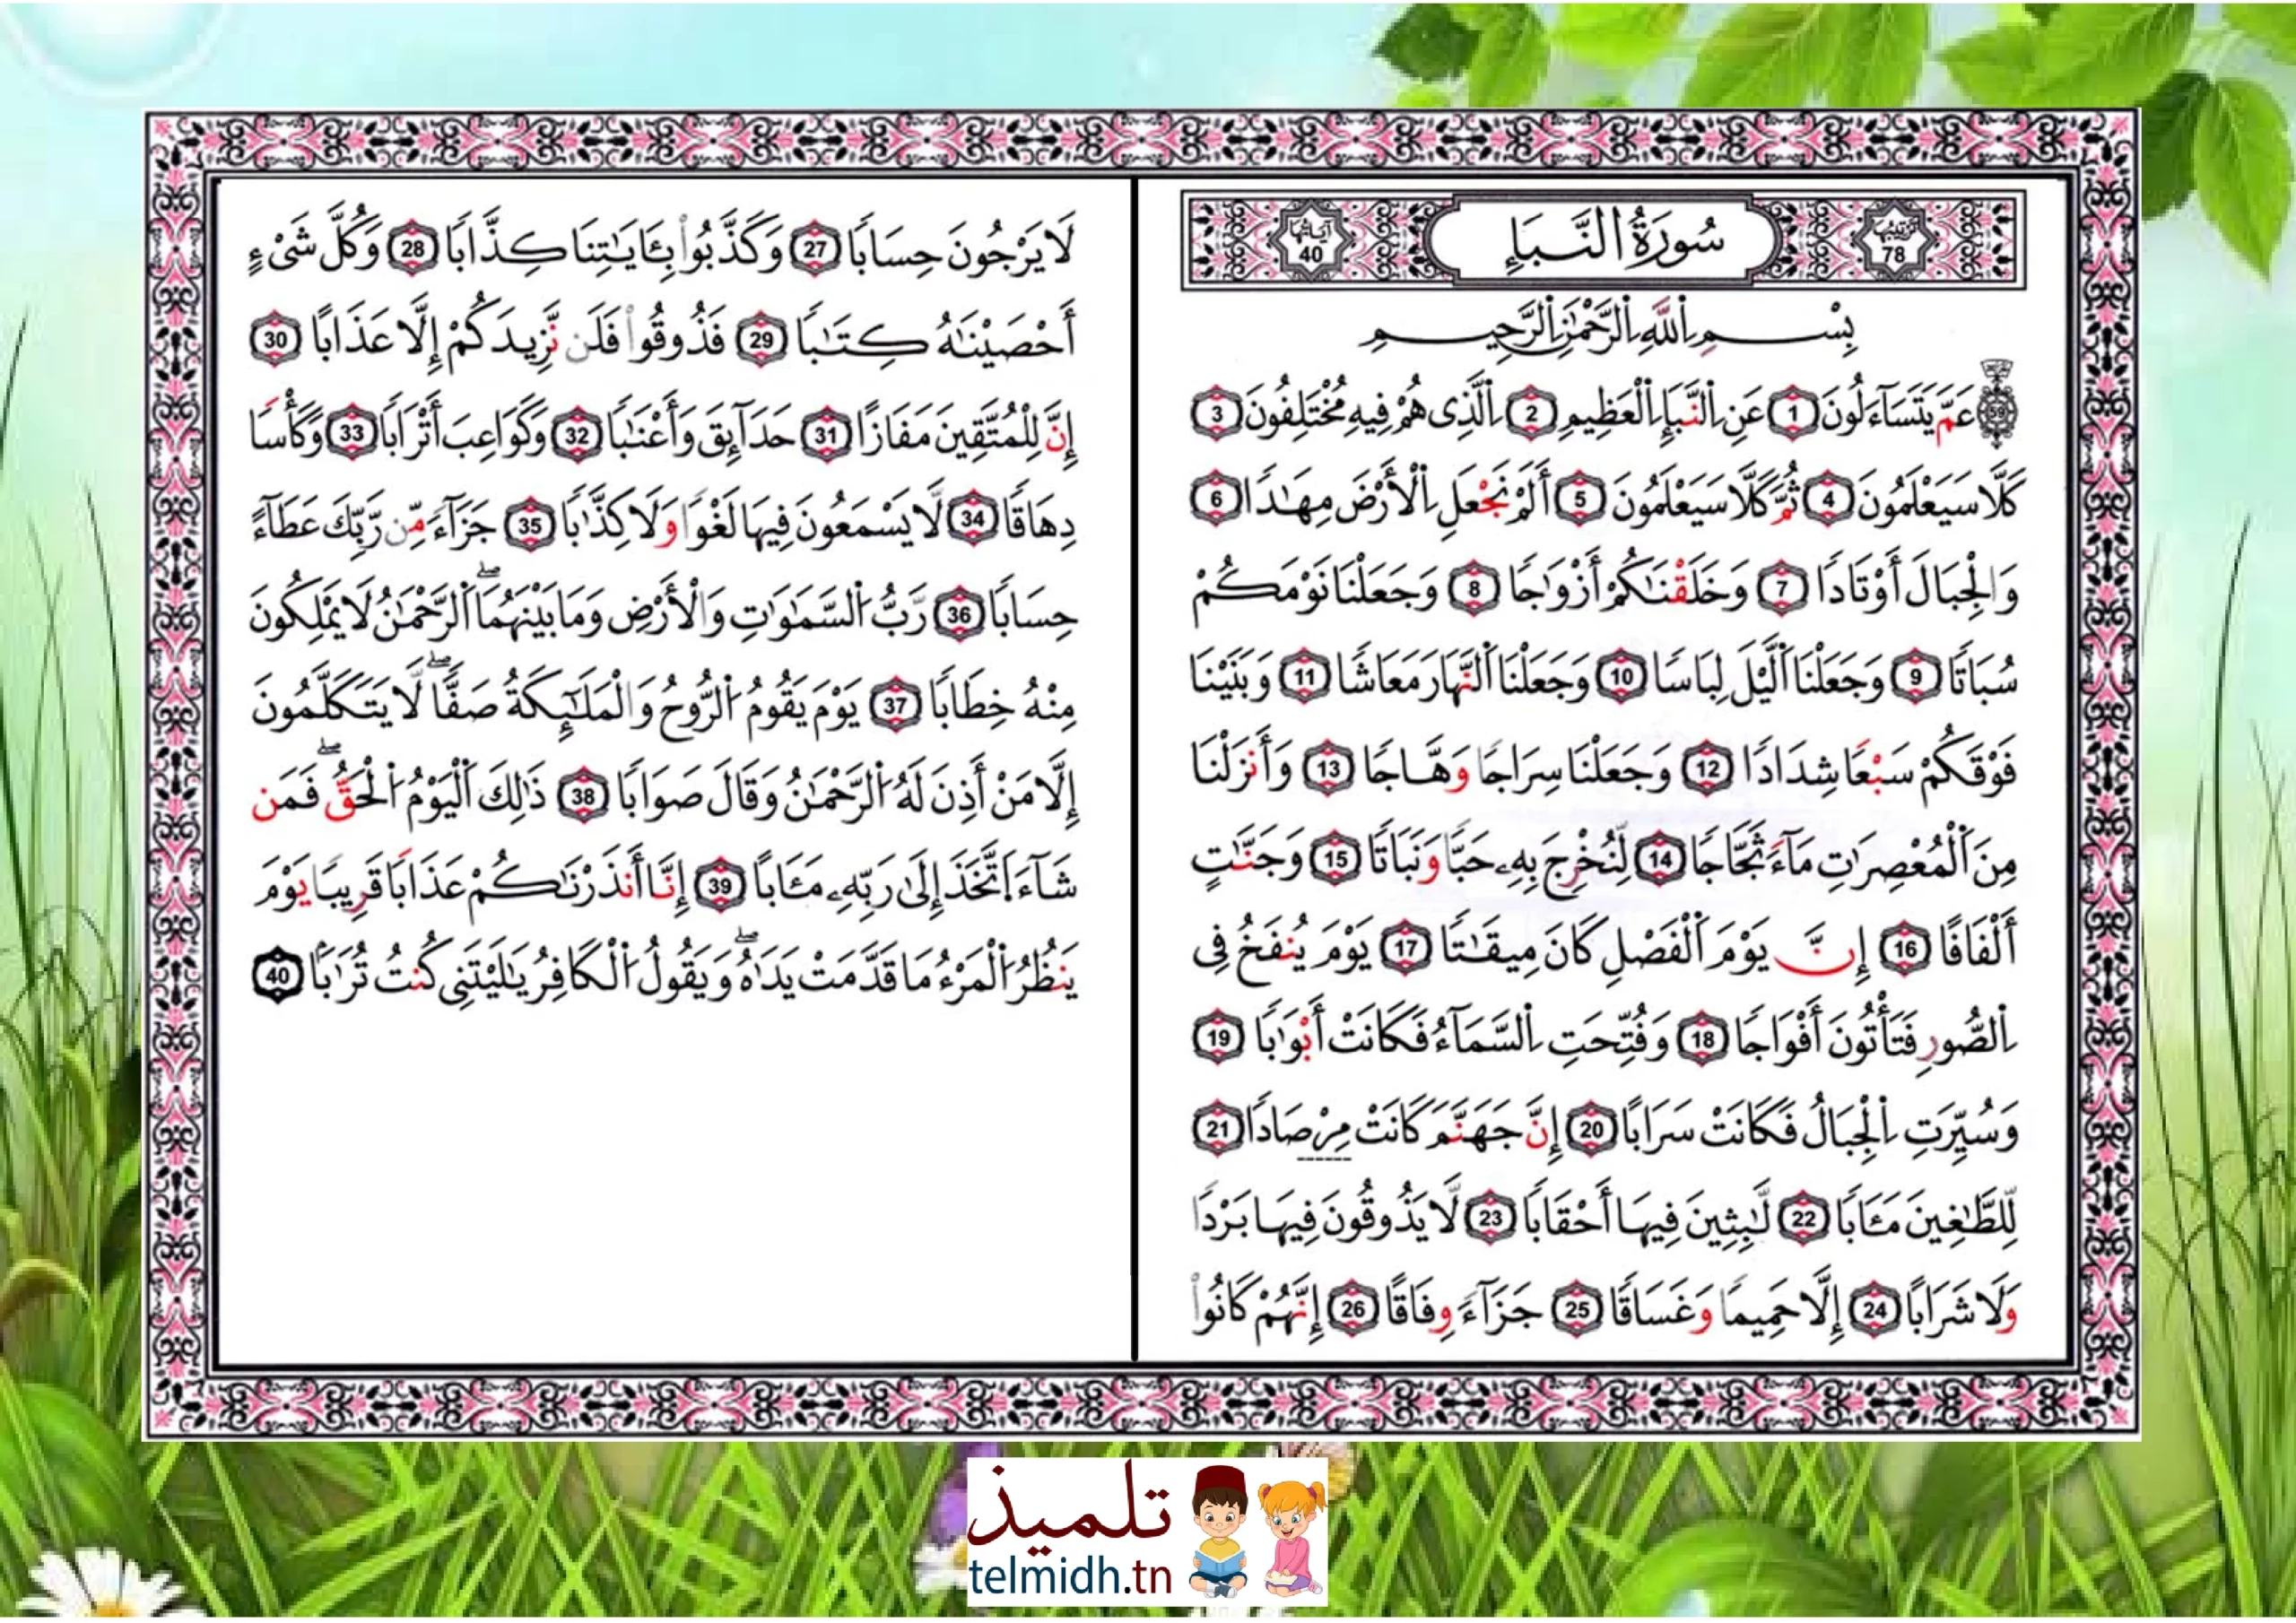 ترتيبها 78
سُورَةُ النَّبَإِ
آياتها 40
بِسْمِ اِ۬للَّهِ اِ۬لرَّحْمَٰنِ اِ۬لرَّحِيمِ
59 عَمَّ يَتَسَآءَلُونَ 1 عَنِ اِ۬لنَّبَإِ اِ۬لْعَظِيمِ 2 اِ۬لَّذِى هُمْ فِيهِ مُخْتَلِفُونَ 3
كَلَّا سَيَعْلَمُونَ 4 ثُمَّ كَلَّا سَيَعْلَمُونَ 5 أَلَمْ نَجْعَلِ اِ۬لْأَرْضَ مِهَٰدًا 6
وَالْجِبَالَ أَوْتَادًا 7 وَخَلَقْنَٰكُمْ أَزْوَٰجًا 8 وَجَعَلْنَا نَوْمَكُمْ
سُبَاتًا 9 وَجَعَلْنَا اَ۬لَّيْلَ لِبَاسًا 10 وَجَعَلْنَا اَ۬لنَّهَارَ مَعَاشًا 11 وَبَنَيْنَا
فَوْقَكُمْ سَبْعًا شِدَادًا 12 وَجَعَلْنَا سِرَاجًا وَهَّاجًا 13 وَأَنزَلْنَا
مِنَ اَ۬لْمُعْصِرَٰتِ مَآءً ثَجَّاجًا 14 لِّنُخْرِجَ بِهِۦ حَبًّا وَنَبَاتًا 15 وَجَنَّٰتٍ
أَلْفَافًا 16 إِنَّ يَوْمَ اَ۬لْفَصْلِ كَانَ مِيقَٰتًا 17 يَوْمَ يُنفَخُ فِى
اِ۬لصُّورِ فَتَأْتُونَ أَفْوَاجًا 18 وَفُتِّحَتِ اِ۬لسَّمَآءُ فَكَانَتْ أَبْوَٰبًا 19
وَسُيِّرَتِ اِ۬لْجِبَالُ فَكَانَتْ سَرَابًا 20 إِنَّ جَهَنَّمَ كَانَتْ مِرْصَادًا 21
لِّلطَّٰغِينَ مَـَٔابًا 22 لَّٰبِثِينَ فِيهَا أَحْقَابًا 23 لَّا يَذُوقُونَ فِيهَا بَرْدًا
وَلَا شَرَابًا 24 إِلَّا حَمِيمًا وَغَسَاقًا 25 جَزَآءً وِفَاقًا 26 إِنَّهُمْ كَانُواْ
لَا يَرْجُونَ حِسَابًا 27 وَكَذَّبُواْ بِـَٔايَٰتِنَا كِذَّابًا 28 وَكُلَّ شَىْءٍ
أَحْصَيْنَٰهُ كِتَٰبًا 29 فَذُوقُواْ فَلَن نَّزِيدَكُمْ إِلَّا عَذَابًا 30
إِنَّ لِلْمُتَّقِينَ مَفَازًا 31 حَدَآئِقَ وَأَعْنَٰبًا 32 وَكَوَاعِبَ أَتْرَابًا 33 وَكَأْسًا
دِهَاقًا 34 لَّا يَسْمَعُونَ فِيهَا لَغْوًا وَلَا كِذَّٰبًا 35 جَزَآءً مِّن رَّبِّكَ عَطَآءً
حِسَابًا 36 رَّبُّ اُ۬لسَّمَٰوَٰتِ وَالْأَرْضِ وَمَا بَيْنَهُمَاۖ اَ۬لرَّحْمَٰنُ لَا يَمْلِكُونَ
مِنْهُ خِطَابًا 37 يَوْمَ يَقُومُ اُ۬لرُّوحُ وَالْمَلَٰٓئِكَةُ صَفًّاۖ لَّا يَتَكَلَّمُونَ
إِلَّا مَنْ أَذِنَ لَهُ اُ۬لرَّحْمَٰنُ وَقَالَ صَوَابًا 38 ذَٰلِكَ اَ۬لْيَوْمُ اُ۬لْحَقُّۖ فَمَن
شَآءَ اَ۪تَّخَذَ إِلَىٰ رَبِّهِۦ مَـَٔابًا 39 إِنَّا أَنذَرْنَٰكُمْ عَذَابًا قَرِيبًا يَوْمَ
يَنظُرُ اُ۬لْمَرْءُ مَا قَدَّمَتْ يَدَاهُۖ وَيَقُولُ اُ۬لْكَافِرُ يَٰلَيْتَنِى كُنتُ تُرَٰبًا 40
تلميذ
telmidh.tn